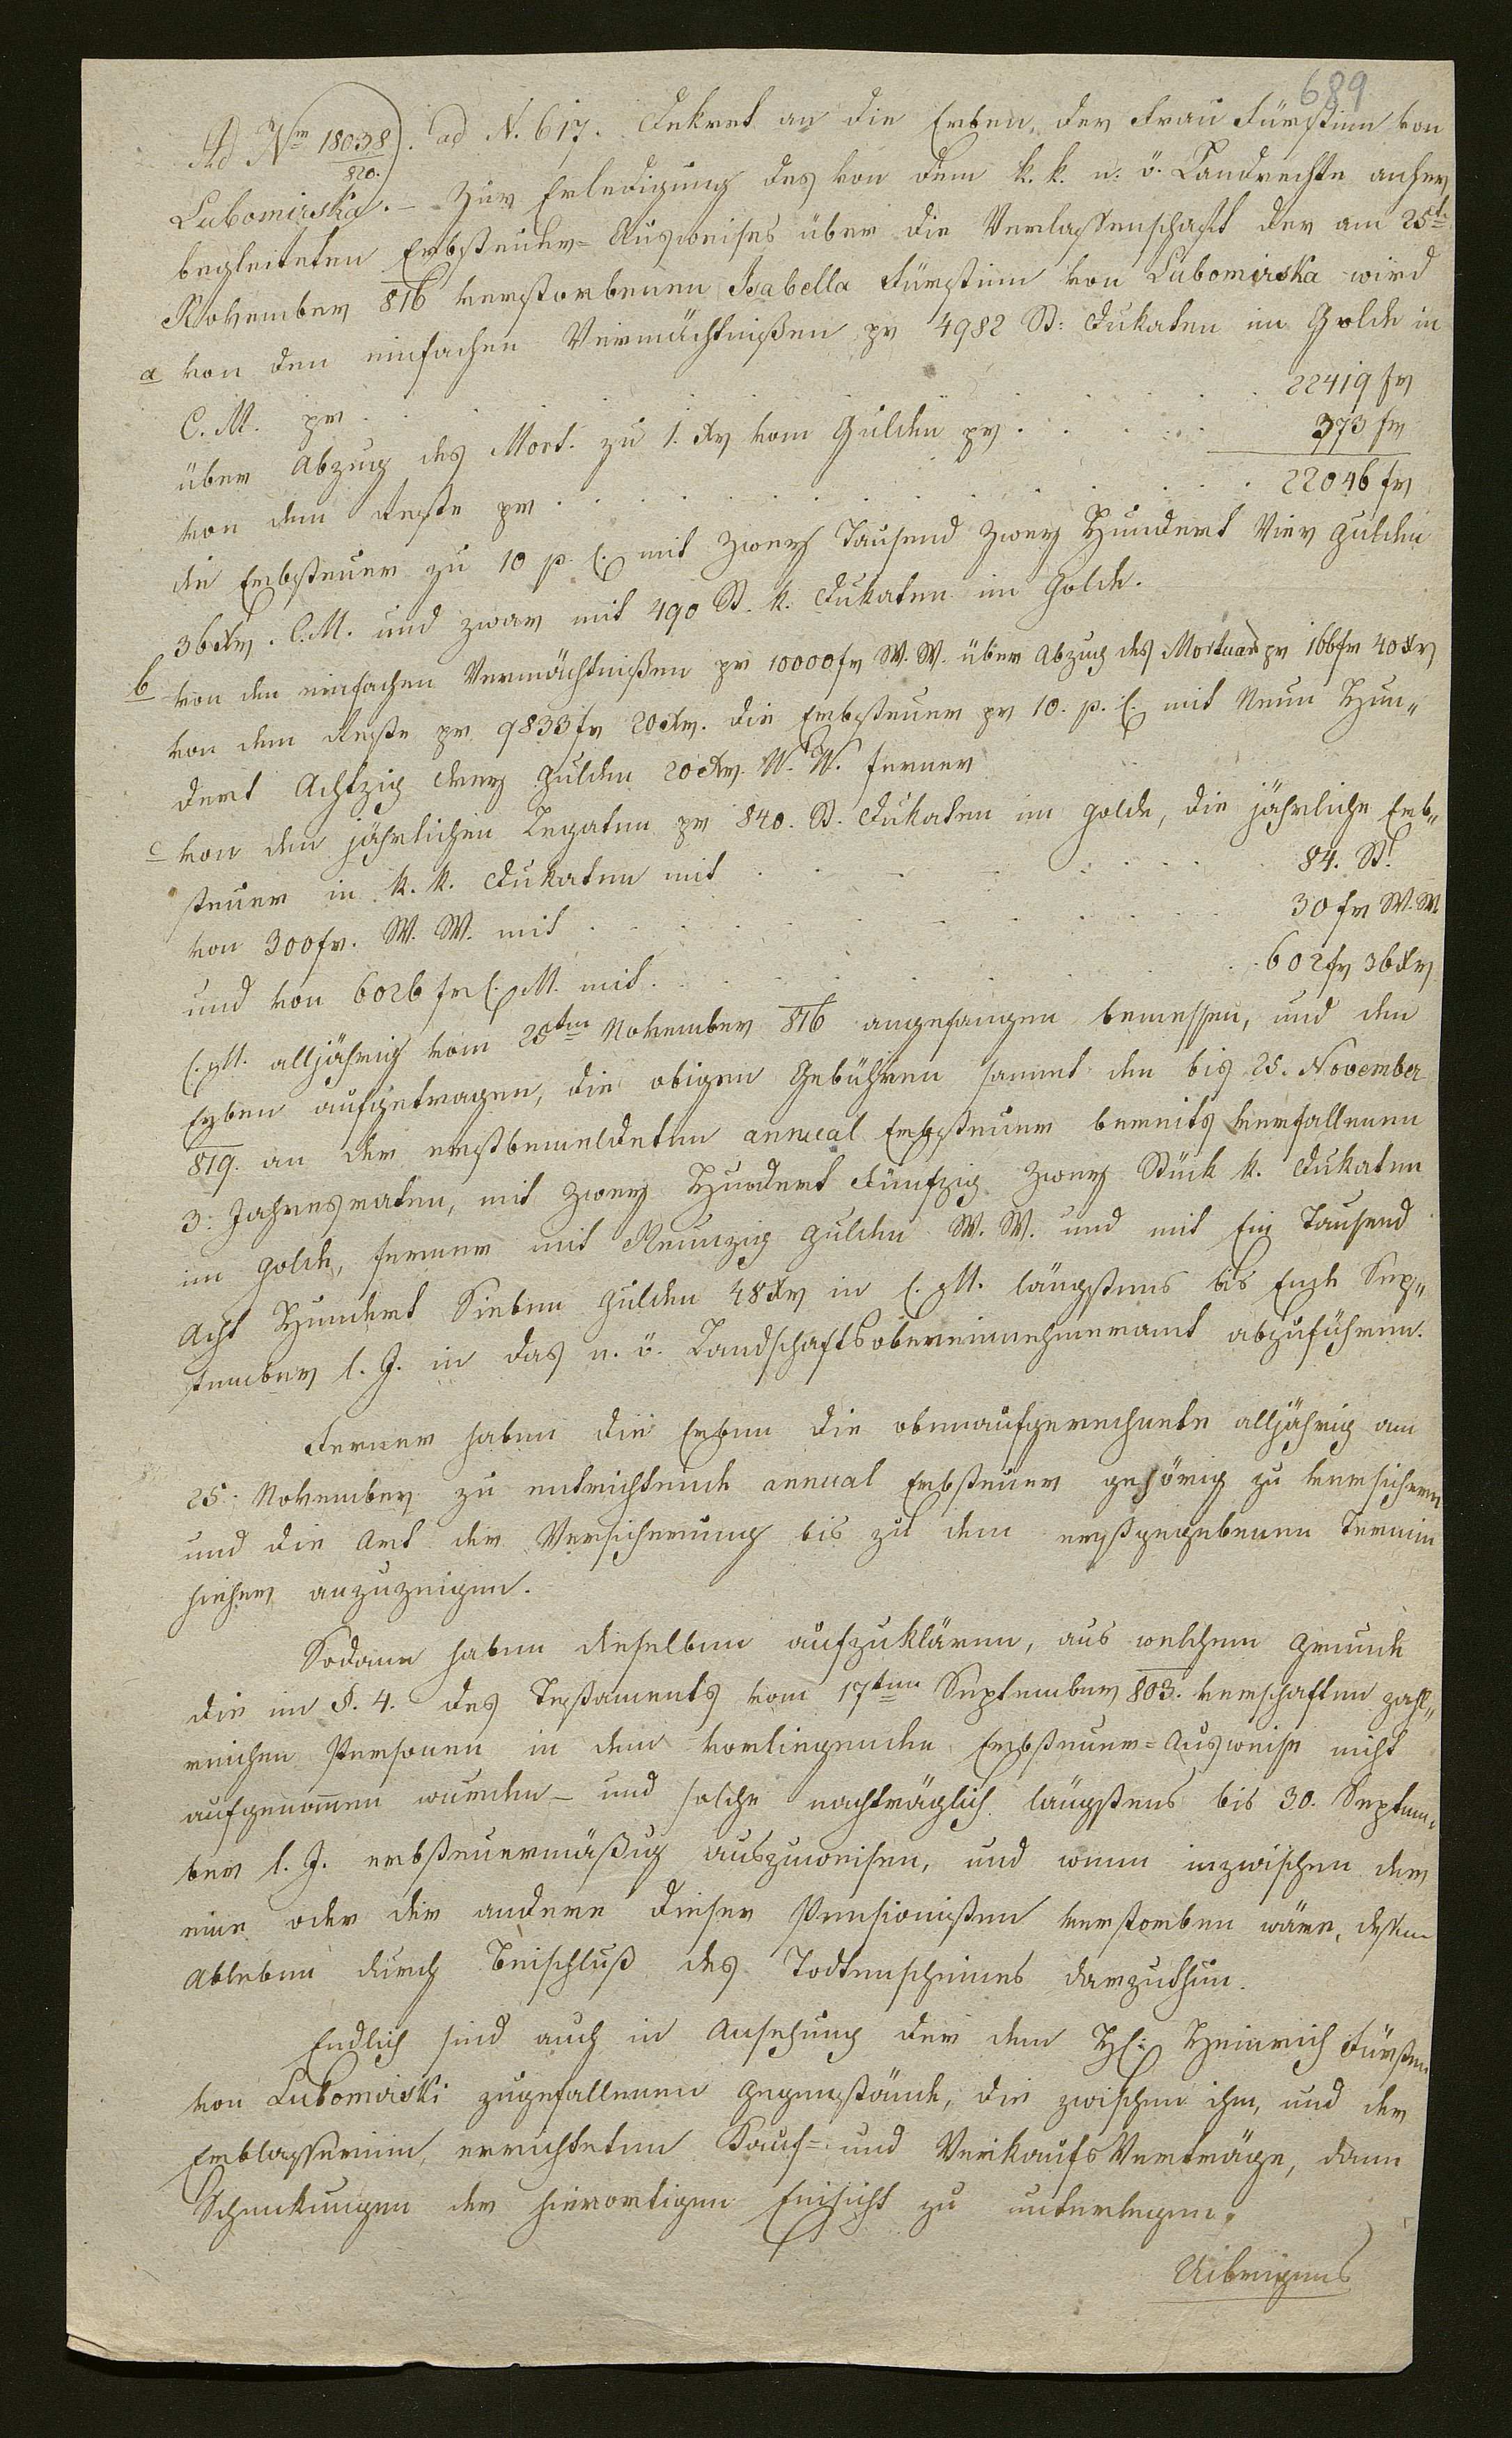 689
Ad Nm 18038/820. ad N. 617. Dekret an die Erben, der Frau Fürstinn von
Lubomirska. – Zur Erledigung des von dem k. k. n: ö. Landrechte anher
begleiteten Erbsteuer-Ausweises über die Verlassenschaft der am 25t.
November 816 verstorbenen Isabella Fürstinn von Lubomirska wird
a von den einfachen Vermächtnißen pr 4982 St: Dukaten im Golde in
C. M. pr . . . . . . . . . . . 22419 fr
über Abzug des Mort. zu 1. Xr vom Gulden pr . . . . . 373 fr
von dem Reste pr . . . . . . . . . . . . 22046 fr
die Erbsteuer zu 10 p. C. mit Zwey Tausend Zwey Hundert Vier Gulden
36 Xr. C. M. und zwar mit 490 St. k. Dukaten im Golde.
b von den einfachen Vermächtnißen pr 10000 fr W. W. über Abzug des Mortuars pr 166 fr 40 Xr
von dem Reste pr 9833 fr 20 Xr. die Erbsteuer pr 10. p. C. mit Neun Hun„
dert Achtzig drey Gulden 20 Xr. W. W. ferner
c von den jährlichen Legaten pr 840. St. Dukaten im Golde, die jährliche Erb„
steuer in k. k. Dukaten mit . . . . . . . . 84. St.
von 300 fr. W. W. mit . . . . . . . . . 30 fr W. W.
und von 6026 fr C. M. mit . . . . . . . . . 602 fr 36 Xr
C. M. alljährig vom 25ten November 816 angefangen bemessen, und den
Erben aufgetragen, die obigen Gebühren sammt den bis 25. November
819. an der erstbemeldeten annual Erbsteuer bereits verfallenen
3. Jahresraten, mit Zwey Hundert Fünfzig Zwey Stück k. Dukaten
im Golde, ferner mit Neunzig Gulden W. W. und mit Ein Tausend
Acht Hundert Sieben Gulden 48 Xr in C. M. längstens bis Ende Sep„
tember l. J. in das n. ö. Landschaftsobereinnehmeramt abzuführen.
Ferner haben die Erben die obenaufgerechnete alljährig am
25. November zu entrichtende annual Erbsteuer gehörig zu versichern
und die Art der Versicherung bis zu dem erstgegebenen Termin
hieher anzuzeigen.
Sodann haben dieselben aufzuklären, aus welchem Grunde
die im §. 4. des Testaments vom 17ten September 803. verschafften zahl„
reichen Personen in dem vorliegenden Erbsteuer-Ausweise nicht
aufgenommen wurden – und solche nachträglich längstens bis 30. Septem„
ber l. J. erbsteuermäßig auszuweisen, und wenn inzwischen der
eine oder der andere dieser Pensionisten verstorben wäre, dessen
Ableben durch Beischluß des Todtenscheines darzuthun.
Endlich sind auch in Ansehung der dem H: Heinrich Fürsten
von Lubomirski zugefallenen Gegenstände, die zwischen ihm, und der
Erblasserinn, errichteten Kauf- und Verkaufs Verträge, dann
Schenkungen der hierortigen Einsicht zu unterlegen.
Uibrigens